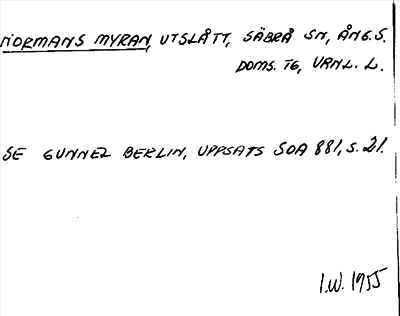 NORMANS MYRAN, UTSLÅTT, SÄBRÅ SN, ÅNG.S.
DOMS. TG, VRNL. L.
SE GUNNEL BERLIN, UPPSATS SOA 881, S. 21.
I.W. 1955